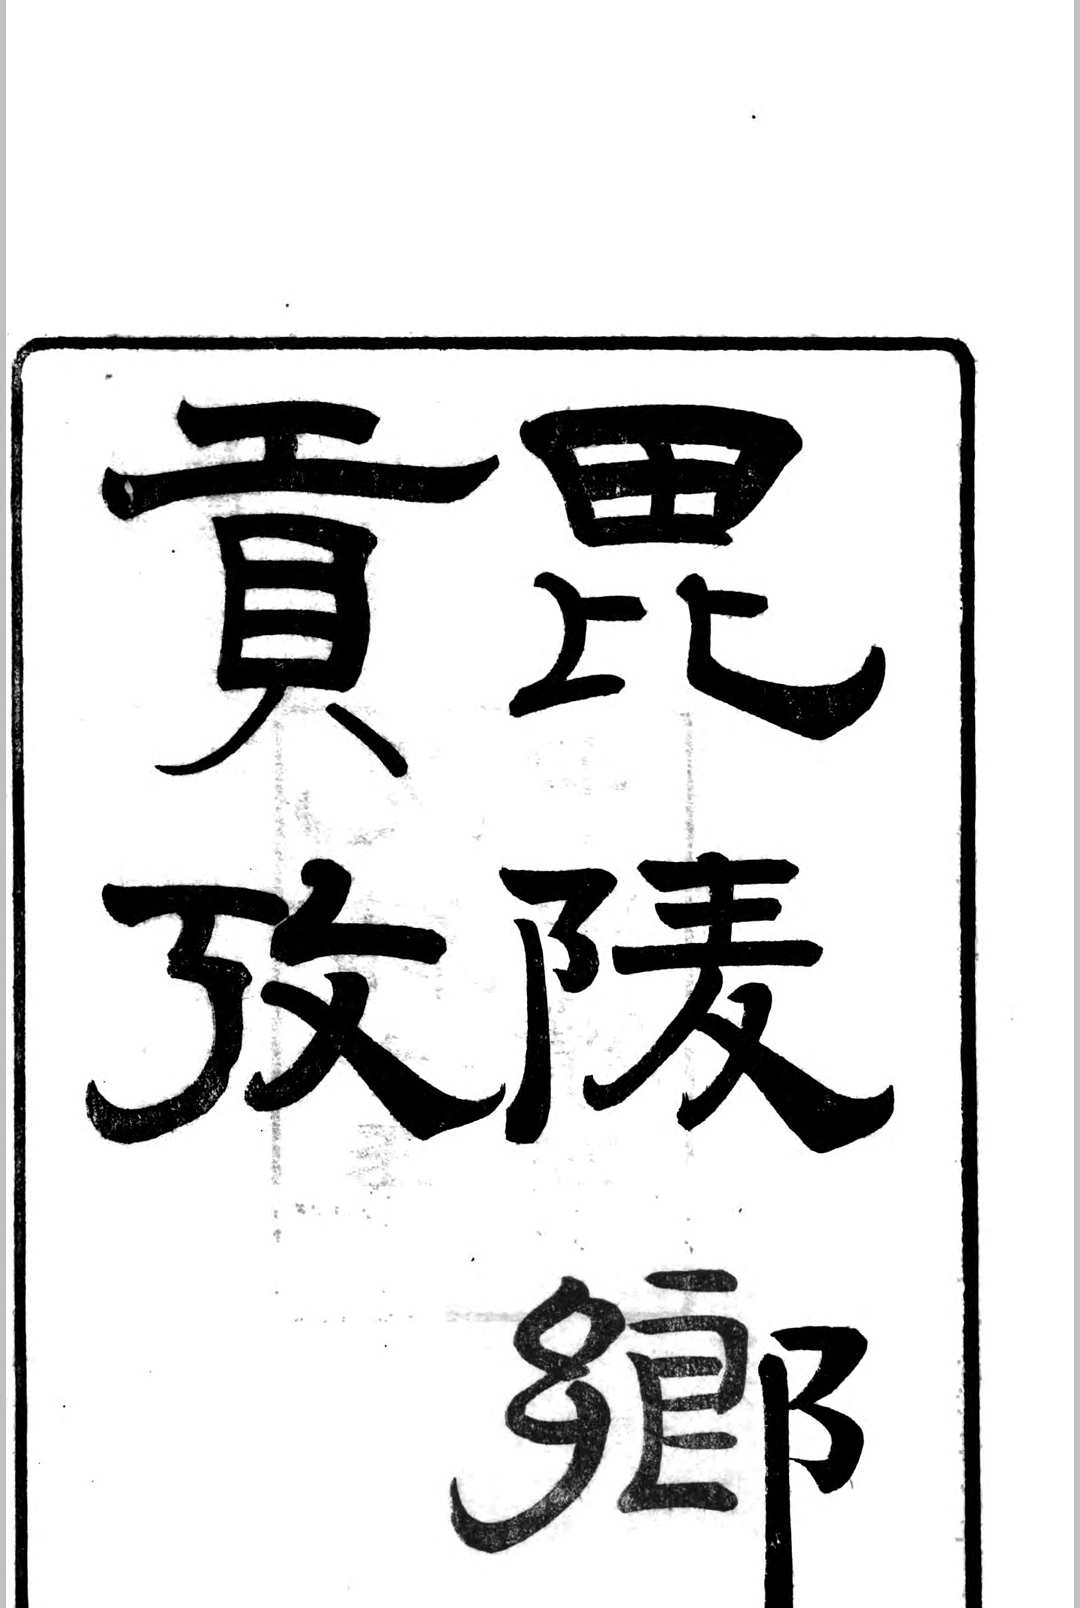 毘陵鄉
貢攷